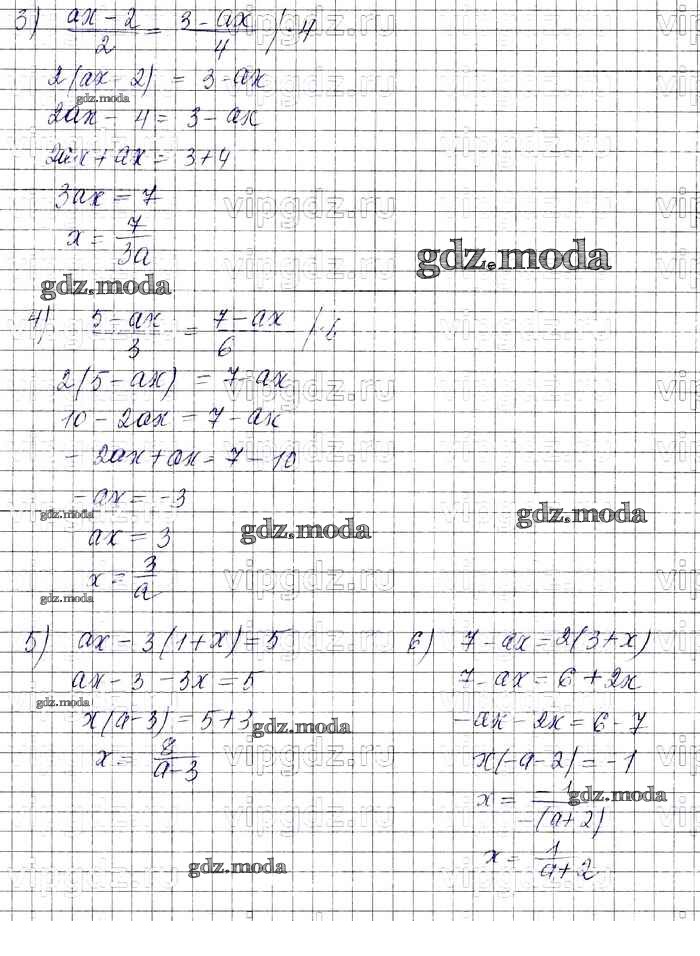 3) (ax - 2)/2 = (3 - ax)/4 /·4
2(ax - 2) = 3 - ax
gdz.moda
2ax - 4 = 3 - ax
2ax + ax = 3 + 4
3ax = 7
vipgdz.ru
x = 7/3a
gdz.moda
gdz.moda
4) (5 - ax)/3 = (7 - ax)/6 /·6
2(5 - ax) = 7 - ax
vipgdz.ru
10 - 2ax = 7 - ax
- 2ax + ax = 7 - 10
- ax = -3
gdz.moda
gdz.moda
gdz.moda
ax = 3
x = 3/a
vipgdz.ru
gdz.moda
5) ax - 3(1 + x) = 5
ax - 3 - 3x = 5
gdz.moda
x(a - 3) = 5 + 3
gdz.moda
x = 8/(a - 3)
vipgdz.ru
gdz.moda
6) 7 - ax = 2(3 + x)
7 - ax = 6 + 2x
- ax - 2x = 6 - 7
x(-a - 2) = -1
x = -1/-(a + 2)
gdz.moda
x = 1/(a + 2)